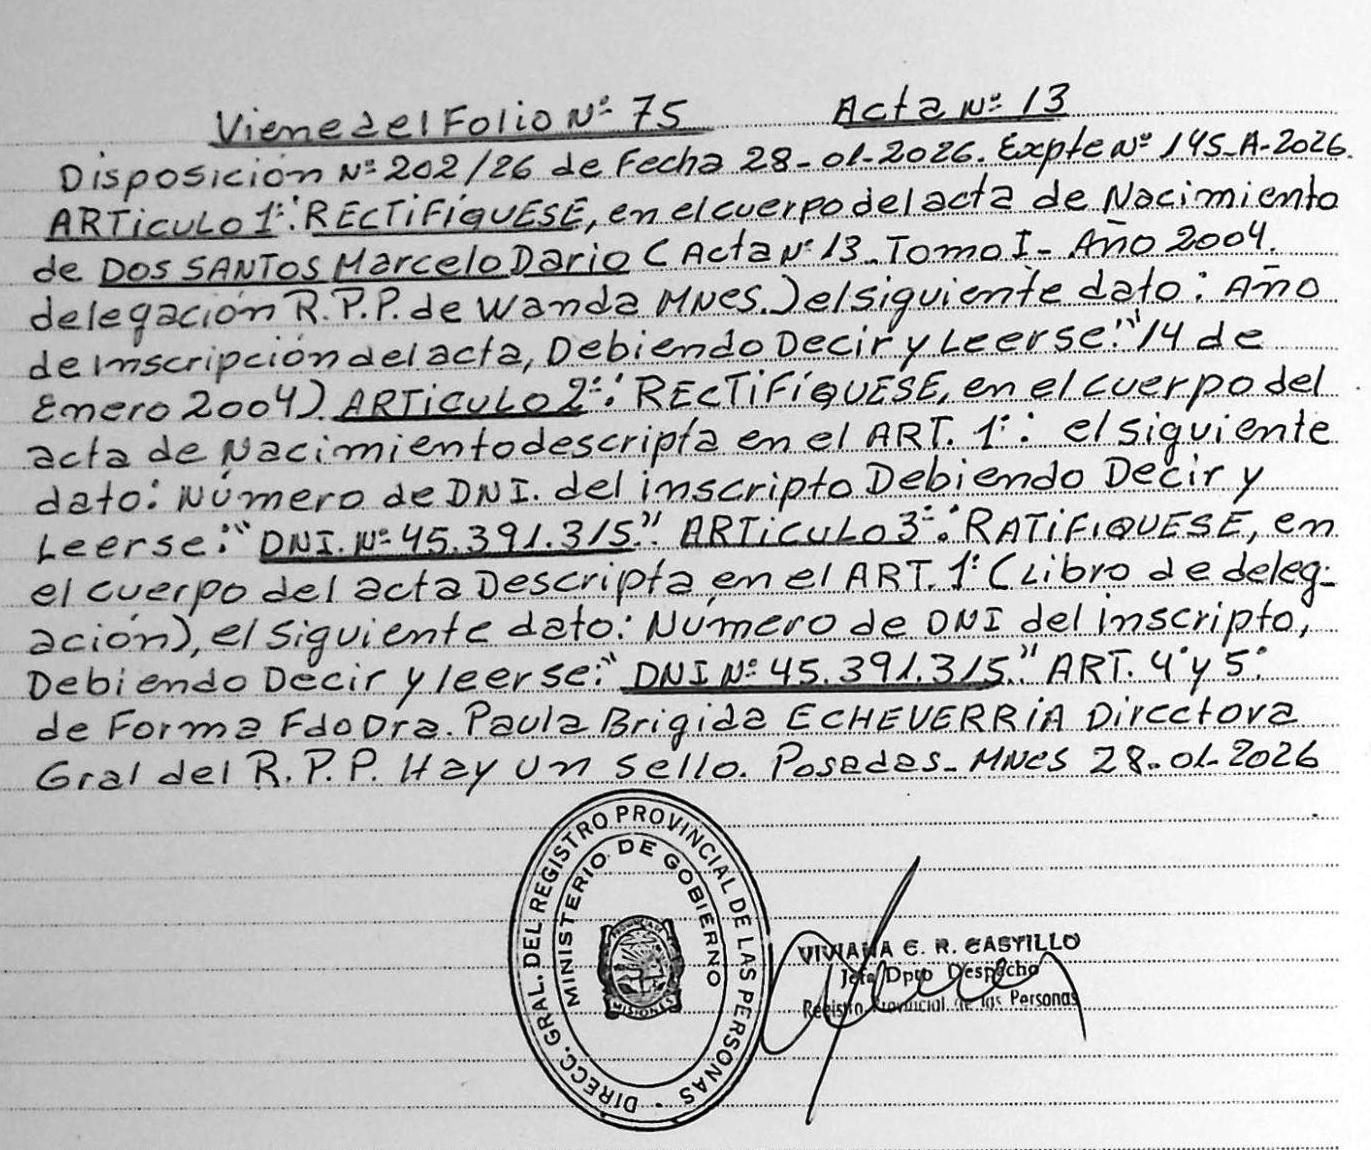 Viene del Folio Nº 75 Acta Nº 13
Disposición Nº 202/26 de Fecha 28-01-2026. Expte Nº 145-A-2026.
ARTiCULO 1º: RECTiFíQUESE, en el cuerpo del acta de Nacimiento
de DOS SANTOS Marcelo Dario (Acta Nº 13 - Tomo I - Año 2004.
delegación R.P.P. de Wanda MNes.) el siguiente dato: Año
de Inscripción del acta, Debiendo Decir y Leerse: "14 de
Enero 2004) ARTiCULO 2º: RECTiFíQUESE, en el cuerpo del
acta de Nacimiento descripta en el ART. 1º: el siguiente
dato: Número de DNI. del inscripto Debiendo Decir y
Leerse: "DNI. Nº 45.391.315" ARTiCULO 3º: RATiFiQUESE, en
el cuerpo del acta Descripta, en el ART. 1º (Libro de deleg-
ación), el siguiente dato: Número de DNI del inscripto,
Debiendo Decir y leerse: "DNI Nº 45.391.315" ART. 4º y 5º
de Forma Fdo Dra. Paula Brigida ECHEVERRiA Directora
Gral del R.P.P. Hay un sello. Posadas - MNes 28-01-2026
DIRECC. GRAL. DEL REGISTRO PROVINCIAL DE LAS PERSONAS
MINISTERIO DE GOBIERNO
MISIONES
VIVIANA E. R. CASTILLO
Jefa Dpto Despacho
Registro Provincial de las Personas